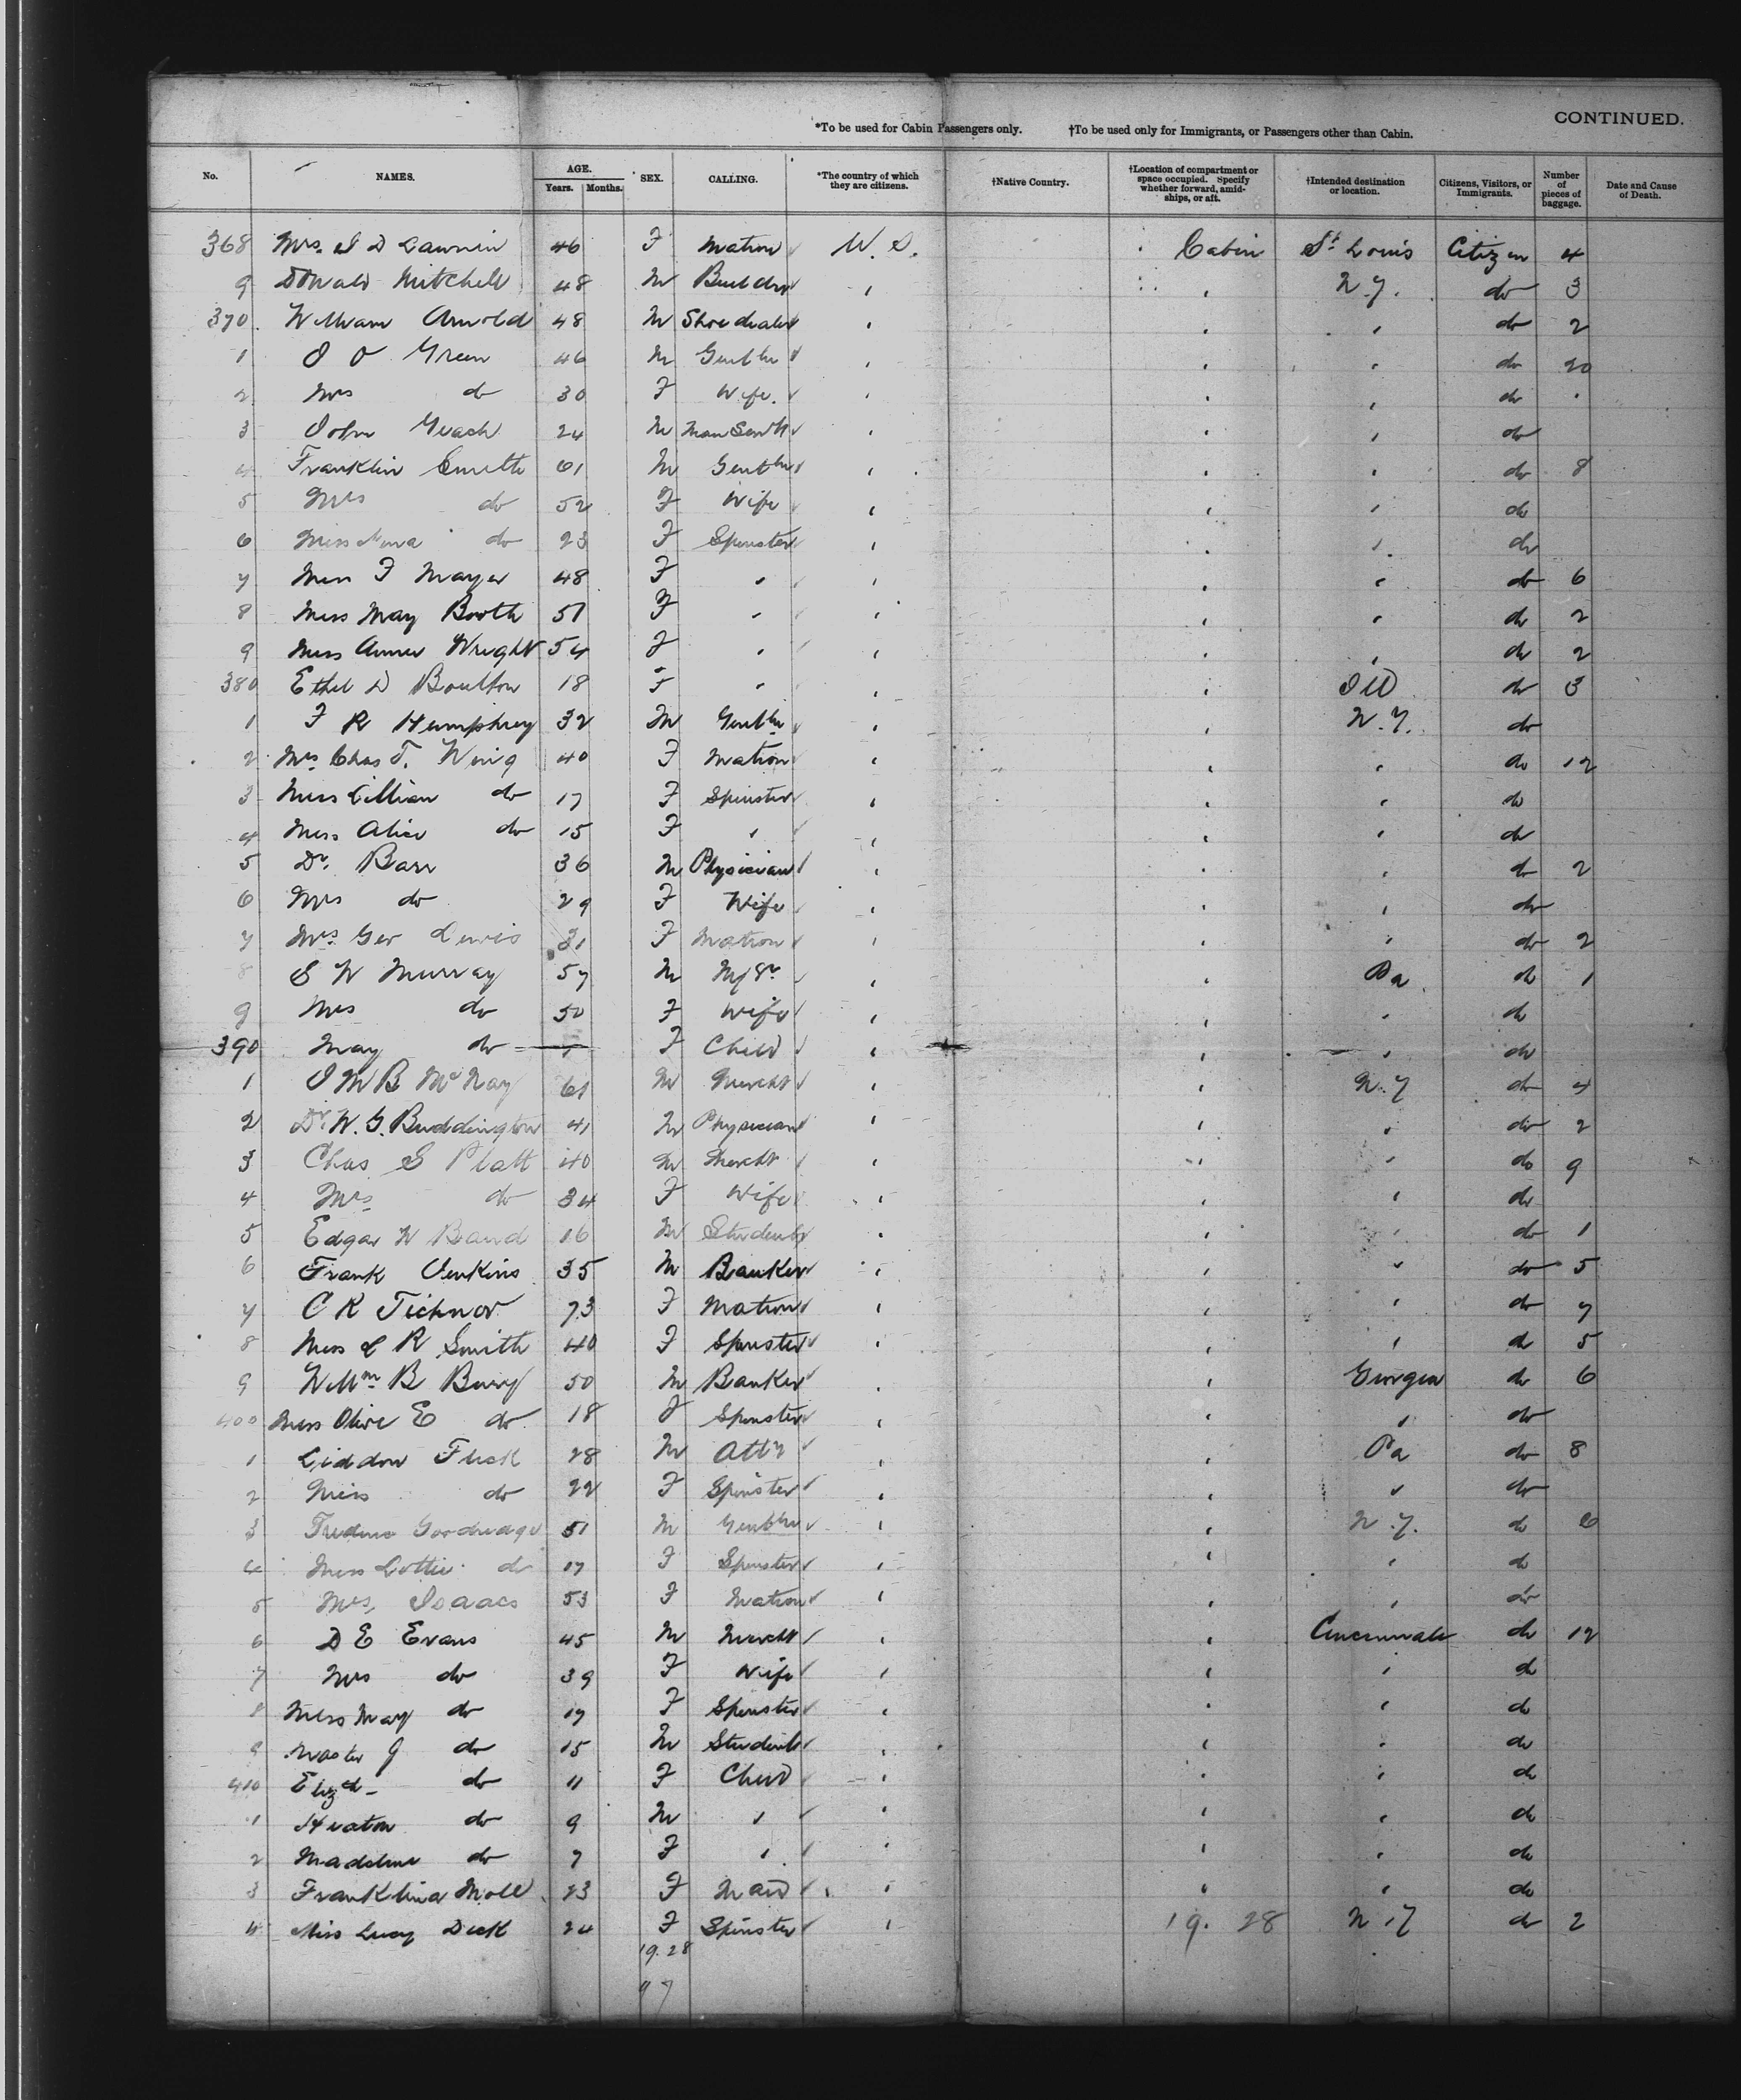 CONTINUED.
*To be used for Cabin Passengers only. †To be used only for Immigrants, or Passengers other than Cabin.
No. NAMES. AGE. Years. Months. SEX. CALLING. *The country of which they are citizens. †Native Country. †Location of compartment or space occupied. Specify whether forward, amidships, or aft. †Intended destination or location. Citizens, Visitors, or Immigrants. Number of pieces of baggage. Date and Cause of Death.
368 Mrs. S D 46 F Matron U. S. Cabin St Louis Citizen 4
9 Donald Mitchell 48 M Builder " " N.Y. do 3
370 William Arnold 48 M Shoe dealer " " " do 2
1 J O Green 46 M Gentln " " " do 20
2 Mrs do 30 F Wife " " " do "
3 John 24 M Man Servt " " " do
4 Franklin Smith 61 M Gentln " " " do 8
5 Mrs do 52 F Wife " " " do
6 Miss do 23 F Spinster " " " do
7 Miss F Mayer 48 F " " " " do 6
8 Miss May Booth 51 F " " " " do 2
9 Miss Annie Wright 54 F " " " " do 2
380 Ethel D Boulton 18 F " " " Ill do 3
1 F R Humphrey 32 M Gentln " " N.Y. do
2 Mrs Chas T. Wing 40 F Matron " " " do 12
3 Miss Lillian do 17 F Spinster " " " do
4 Miss Alice do 15 F " " " " do
5 Dr. Barr 36 M Physician " " " do 2
6 Mrs do 29 F Wife " " " do
7 Mrs Geo Lewis 31 F Matron " " " do 2
8 S W Murray 57 M Mfgr " " Pa do 1
9 Mrs do 50 F Wife " " " do
390 May do F Child " " " do
1 J M B McKay 61 M Mercht " " N.Y do 4
2 Dr W. G. Buddington 41 M Physician " " " do 2
3 Chas S Platt 40 M Mercht " " " do 9
4 Mrs do 34 F Wife " " " do
5 Edgar W Baird 16 M Student " " " do 1
6 Frank Jenkins 35 M Banker " " " do 5
7 C R Tichnor 73 F Matron " " " do 7
8 Miss E R Smith 40 F Spinster " " " do 5
9 Willm B Berry 50 M Banker " " Georgia do 6
400 Miss Olive E do 18 F Spinster " " " do
1 Liddon Flick 28 M Atty " " Pa do 8
2 Miss do 22 F Spinster " " " do
3 Goodridge 51 M Gentln " " N.Y. do 6
4 Miss Lottie do 17 F Spinster " " " do
5 Mrs. Isaacs 53 F Matron " " " do
6 D E Evans 45 M Mercht " " Cincinnati do 12
7 Mrs do 39 F Wife " " " do
8 Miss May do 17 F Spinster " " " do
9 Master G do 15 M Student " " " do
410 Elizth do 11 F Child " " " do
1 Heaton do 9 M " " " " do
2 Madeline do 7 F " " " " do
3 Franklina Moll 23 F Maid " " " do
4 Miss Lucy Dick 24 F Spinster " 19. 28 N.Y do 2
19.28
47